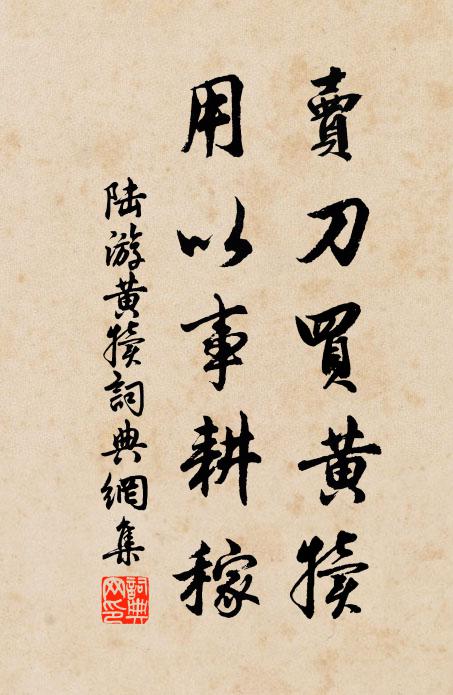 賣刀買黃犢
用以事耕稼
陆游黃犢詞典網集
詞典
网印